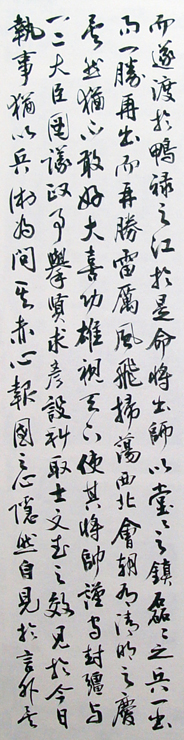 而遂渡於鴨祿之江於是命將出師以堂々之鎮磊々之兵一出
而一勝再出而再勝雷厲風飛掃蕩西北會朝為清明之慶
矣然猶不敢好大喜功雄視天下使其將帥謹守封疆與
一二大臣圖議政事舉賢求彥設科取士文武之效見於今日
執事猶以兵為問其赤心報國之心隱然自見於言外矣